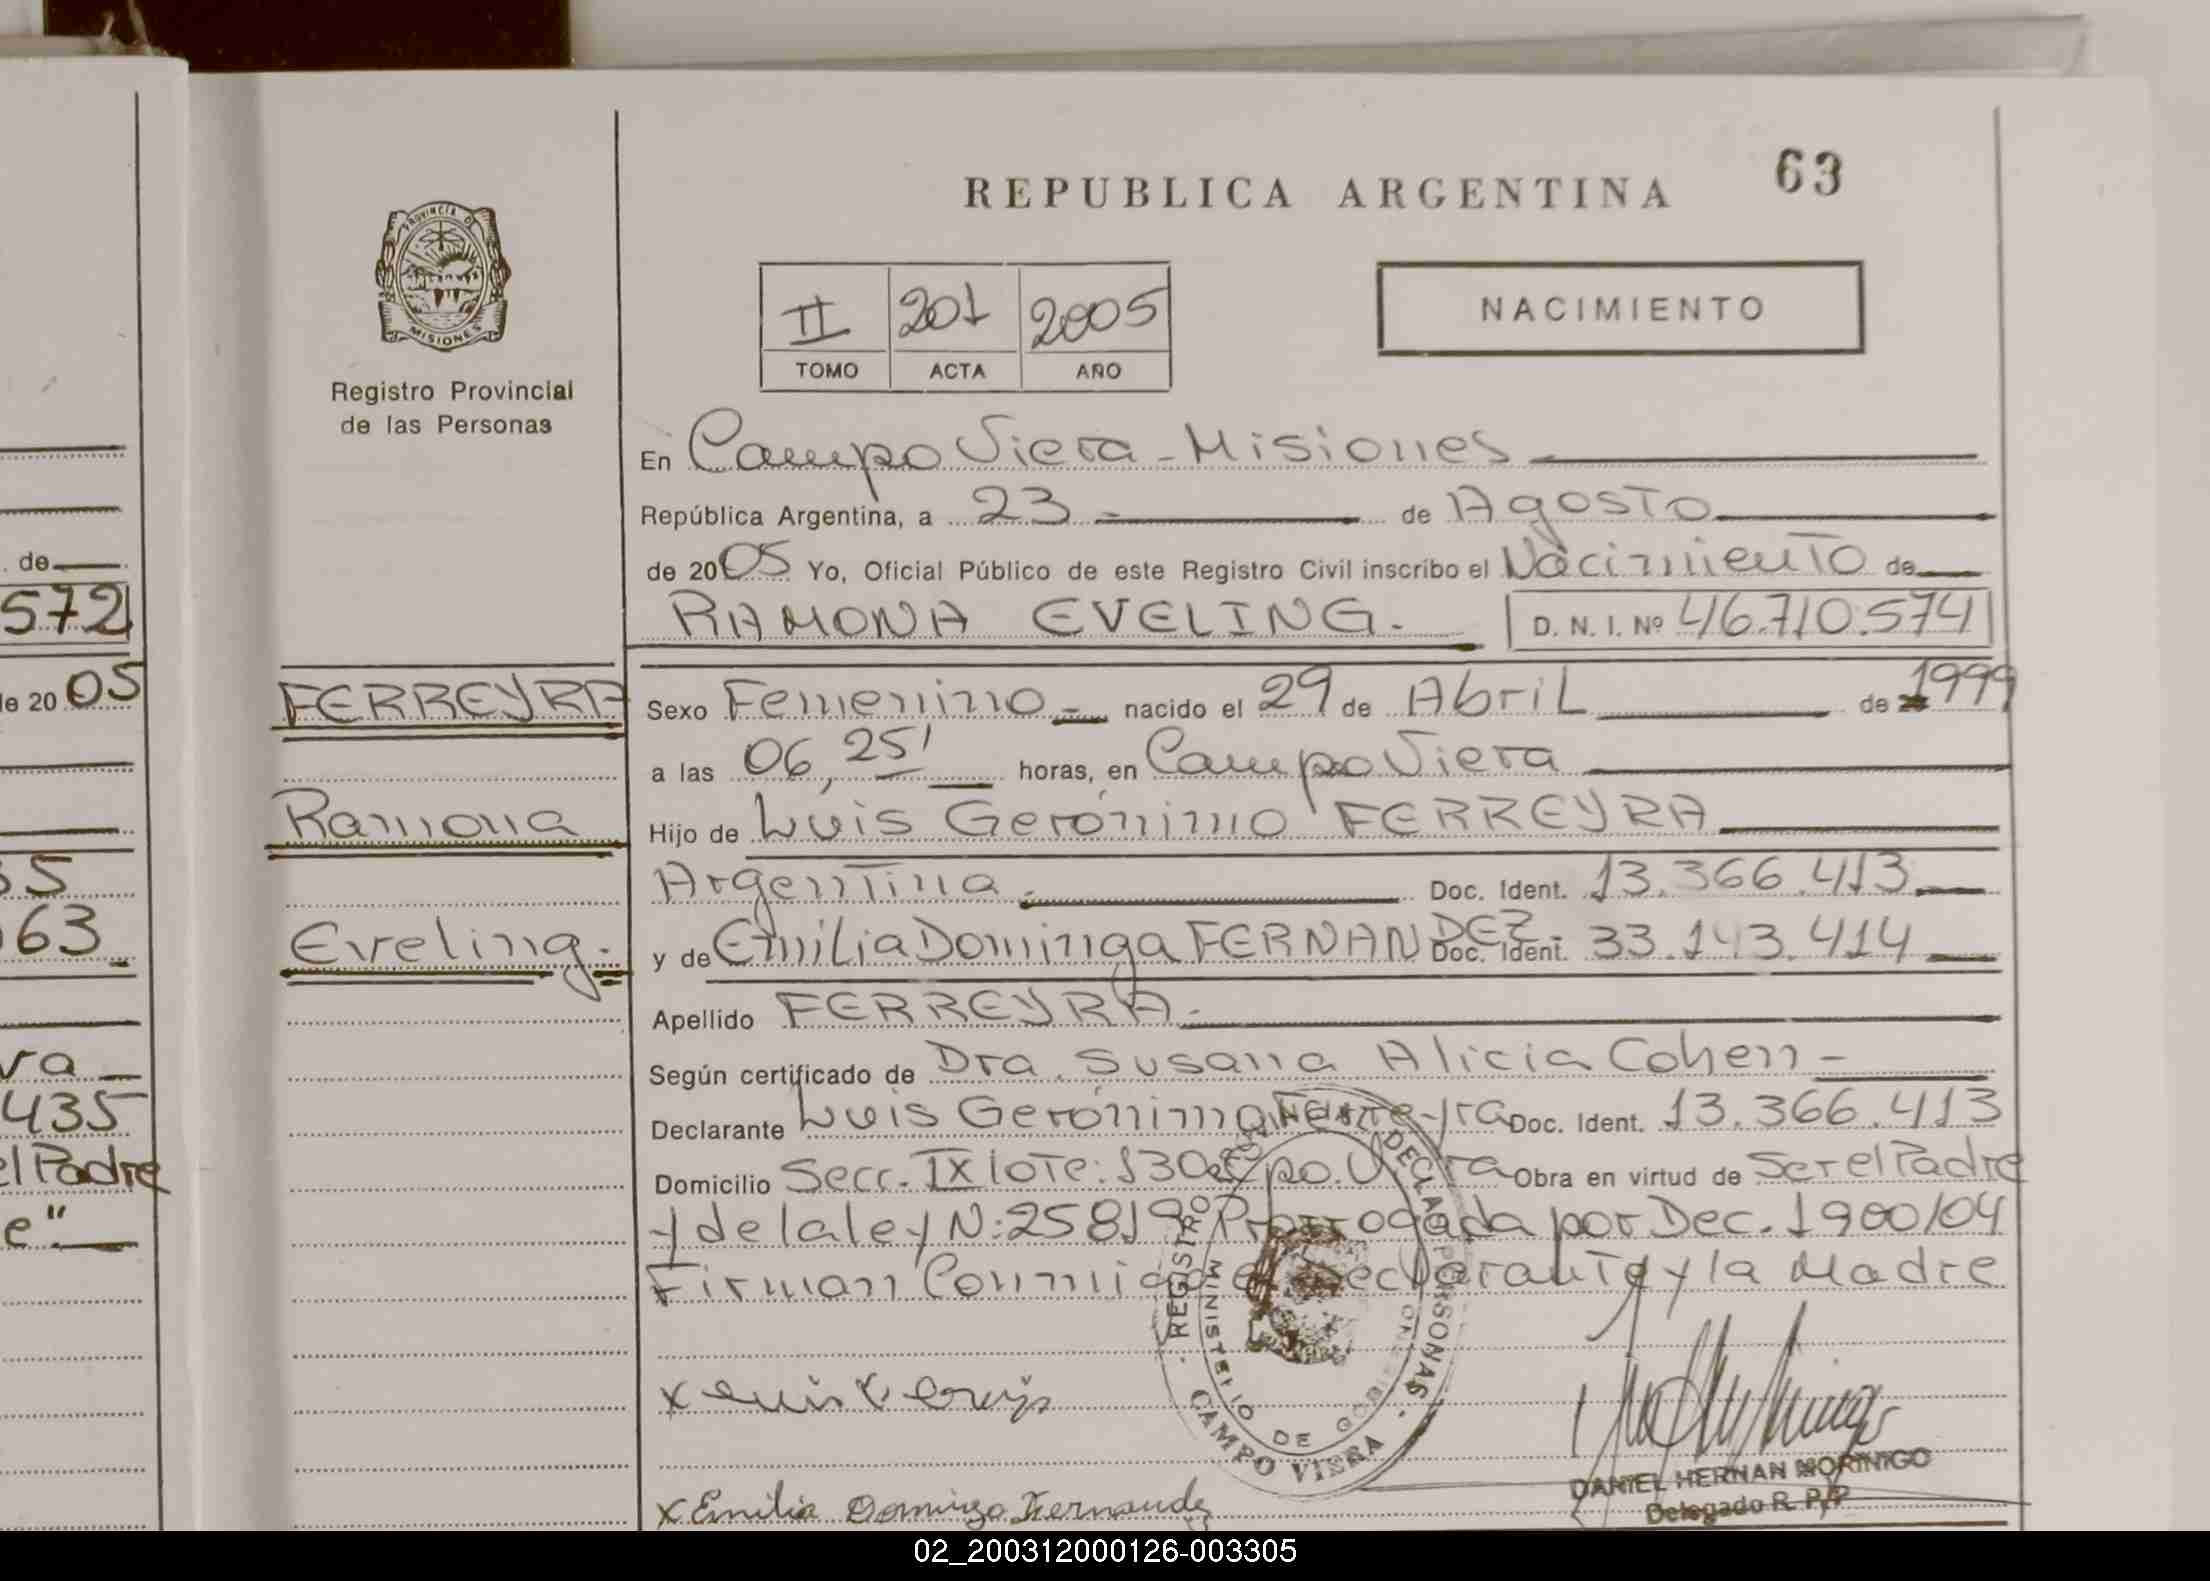 REPUBLICA ARGENTINA 63
PROVINCIA DE
MISIONES
Registro Provincial
de las Personas
II 201 2005
TOMO ACTA AÑO
NACIMIENTO
En Campo Viera - Misiones
República Argentina, a 23 de Agosto
de 2005 Yo, Oficial Público de este Registro Civil inscribo el Nacimiento de
RAMONA EVELING. D. N. I. Nº 46.710.574
FERREYRA
Ramona
Eveling.
Sexo Femenino - nacido el 29 de Abril de 1999
a las 06,25' horas, en Campo Viera
Hijo de Luis Gerónimo FERREYRA
Argentina. Doc. Ident. 13.366.413
y de Emilia Dominga FERNANDEZ - Doc. Ident. 33.143.414
Apellido FERREYRA.
Según certificado de Dra. Susana Alicia Cohen -
Declarante Luis Gerónimo Ferreyra Doc. Ident. 13.366.413
Domicilio Secc. IX lote: 130 Cpo. Viera Obra en virtud de Ser el Padre
y de la ley N: 25819 Prorrogada por Dec. 1900/04
Firman Conmigo el Declarante y la Madre
REGISTRO PERSONAS
MINISTERIO DE
CAMPO VIERA
x Emilia Dominga Fernandez
DANIEL HERNAN MORINIGO
Delegado R. P. P
de
572
de 20 05
35
63
va
435
el Padre
e"
02_200312000126-003305